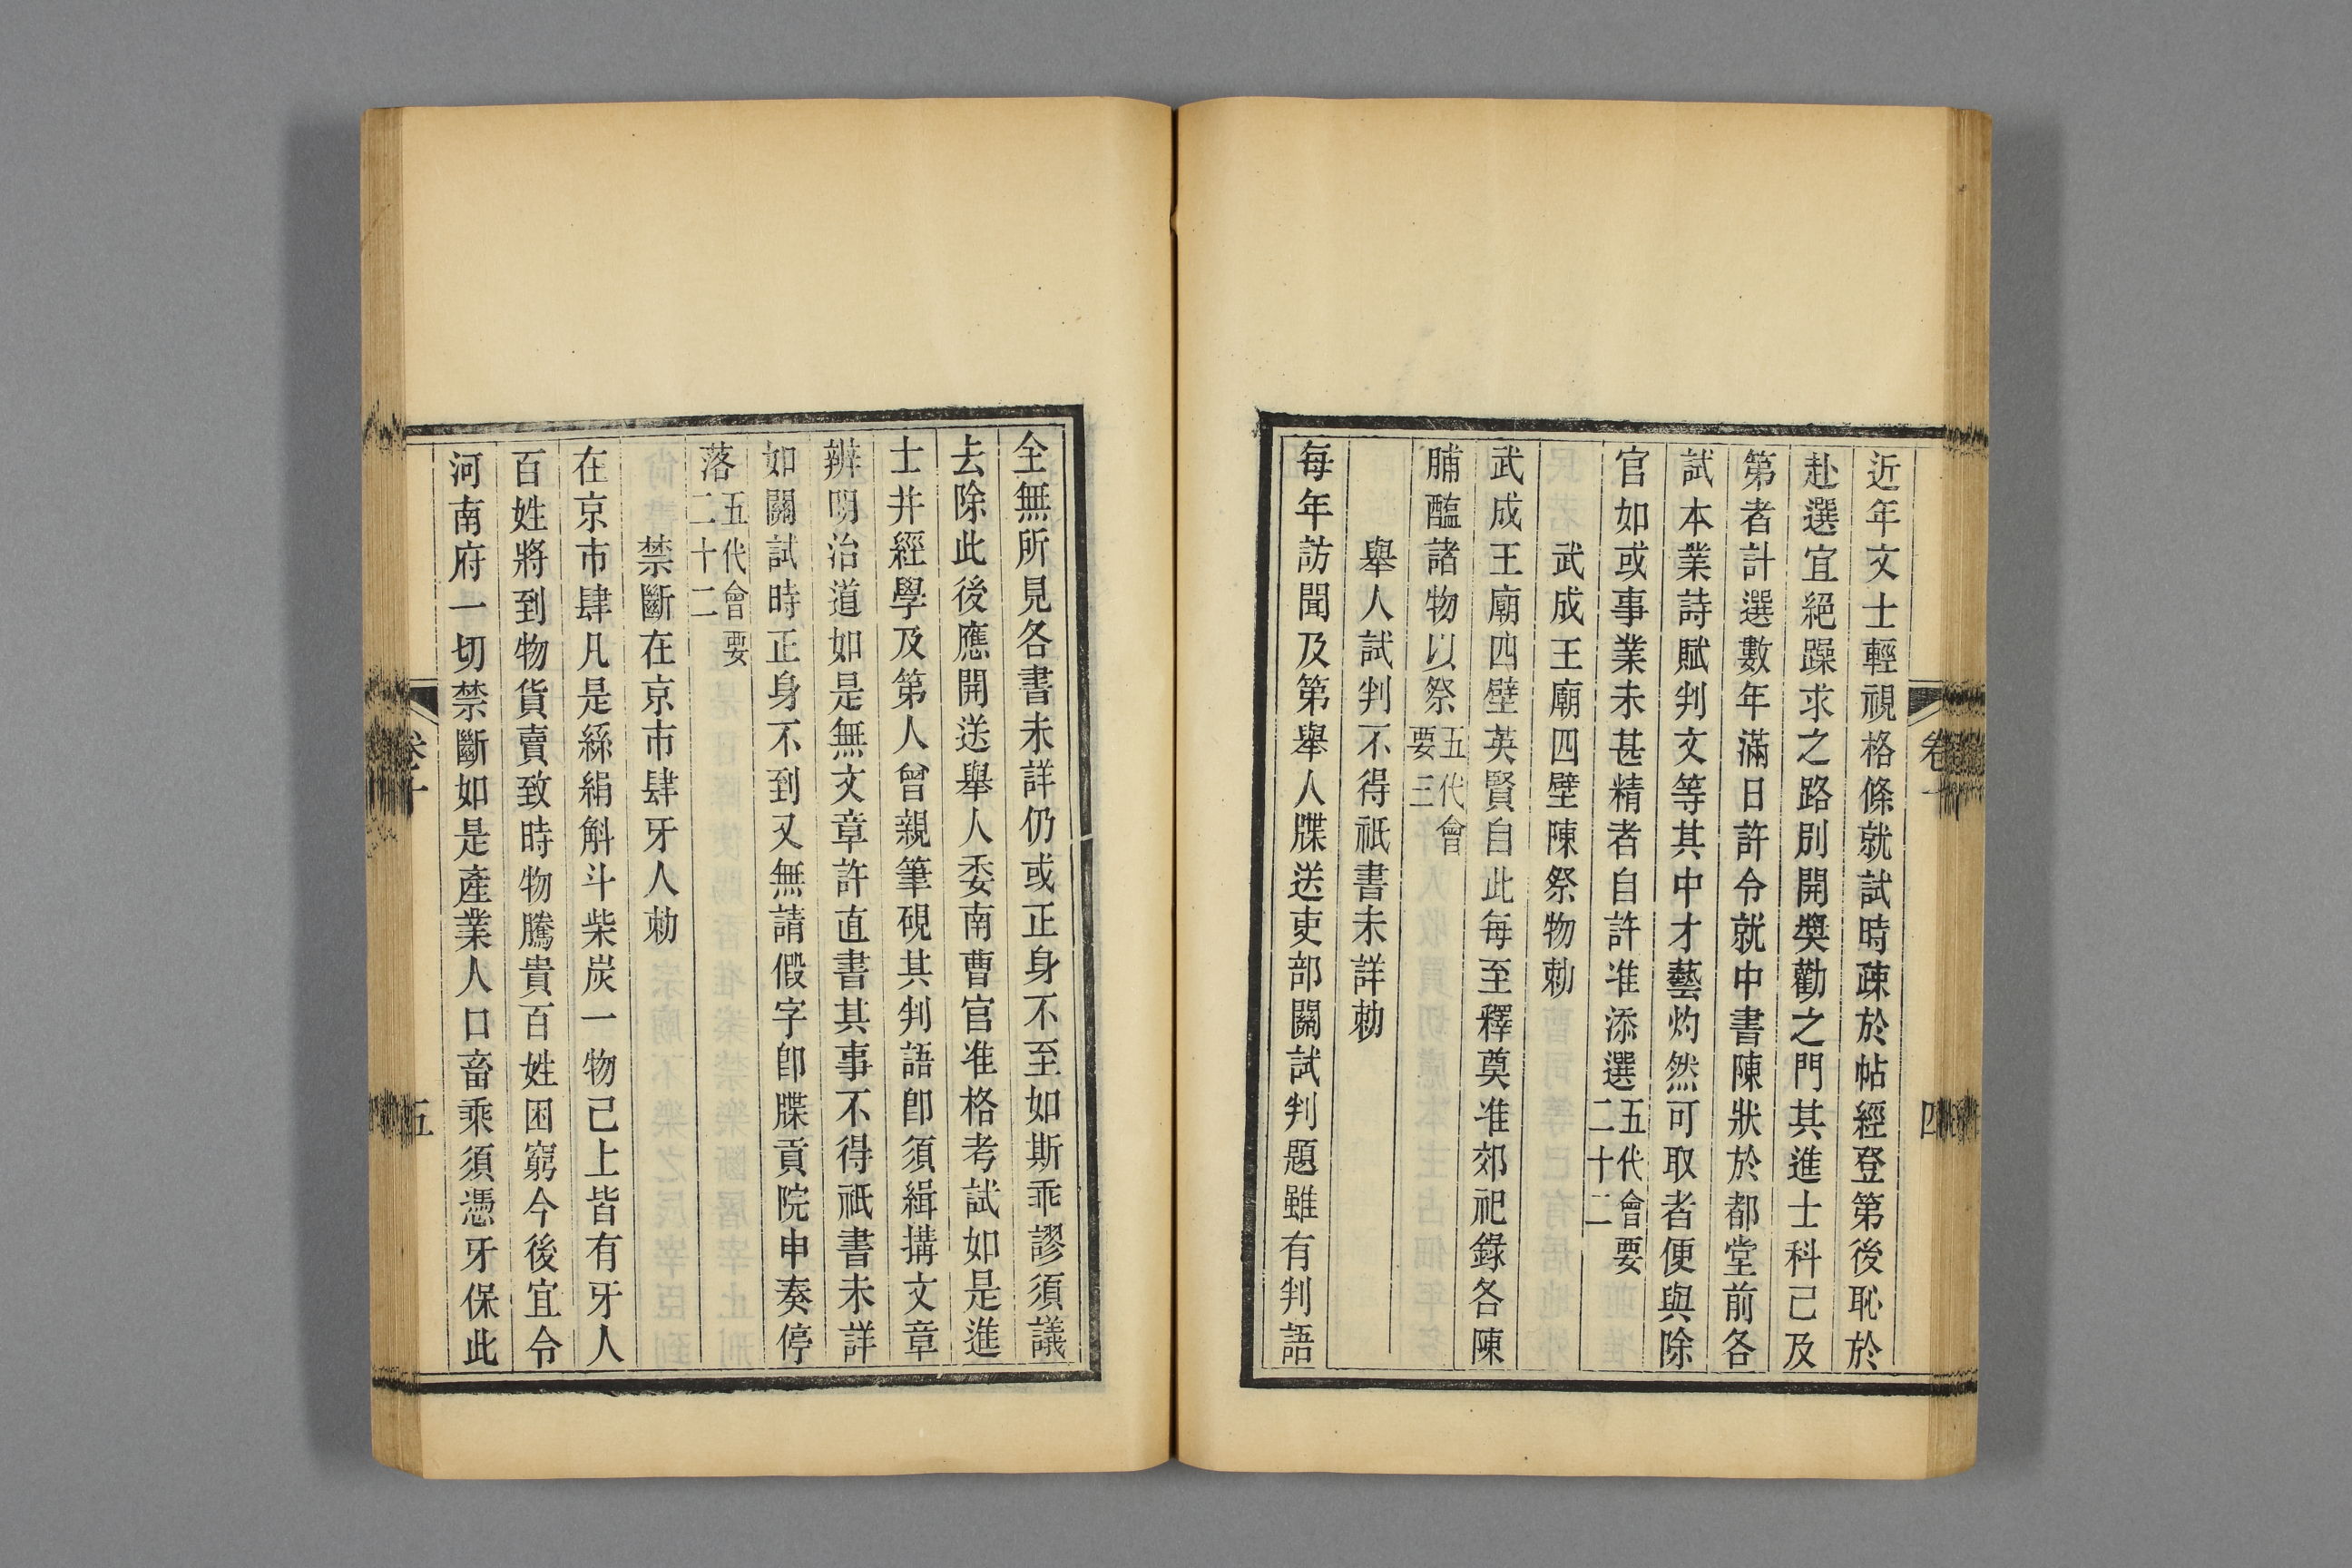 近年文士輕視格條就試時疎於帖經登第後恥於
赴選宜絕躁求之路別開奬勸之門其進士科己及
第者計選數年滿日許令就中書陳狀於都堂前各
試本業詩賦判文等其中才藝灼然可取者便與除
官如或事業未甚精者自許准添選五代會要二十二
武成王廟四壁陳祭物勅
武成王廟四壁英賢自此每至釋奠准郊祀錄各陳
脯醢諸物以祭五代會要三
舉人試判不得祇書未詳勅
每年訪聞及第舉人牒送吏部關試判題雖有判語
全無所見各書未詳仍或正身不至如斯乖謬須議
去除此後應開送舉人委南曹官准格考試如是進
士并經學及第人曾親筆硯其判語卽須緝搆文章
辨明治道如是無文章許直書其事不得祇書未詳
如關試時正身不到又無請假字卽牒貢院申奏停
落五代會要二十二
禁斷在京市肆牙人勅
在京市肆凡是絲絹斛斗柴炭一物己上皆有牙人
百姓將到物貨賣致時物騰貴百姓困窮今後宜令
河南府一切禁斷如是產業人口畜乘須憑牙保此
卷十
五